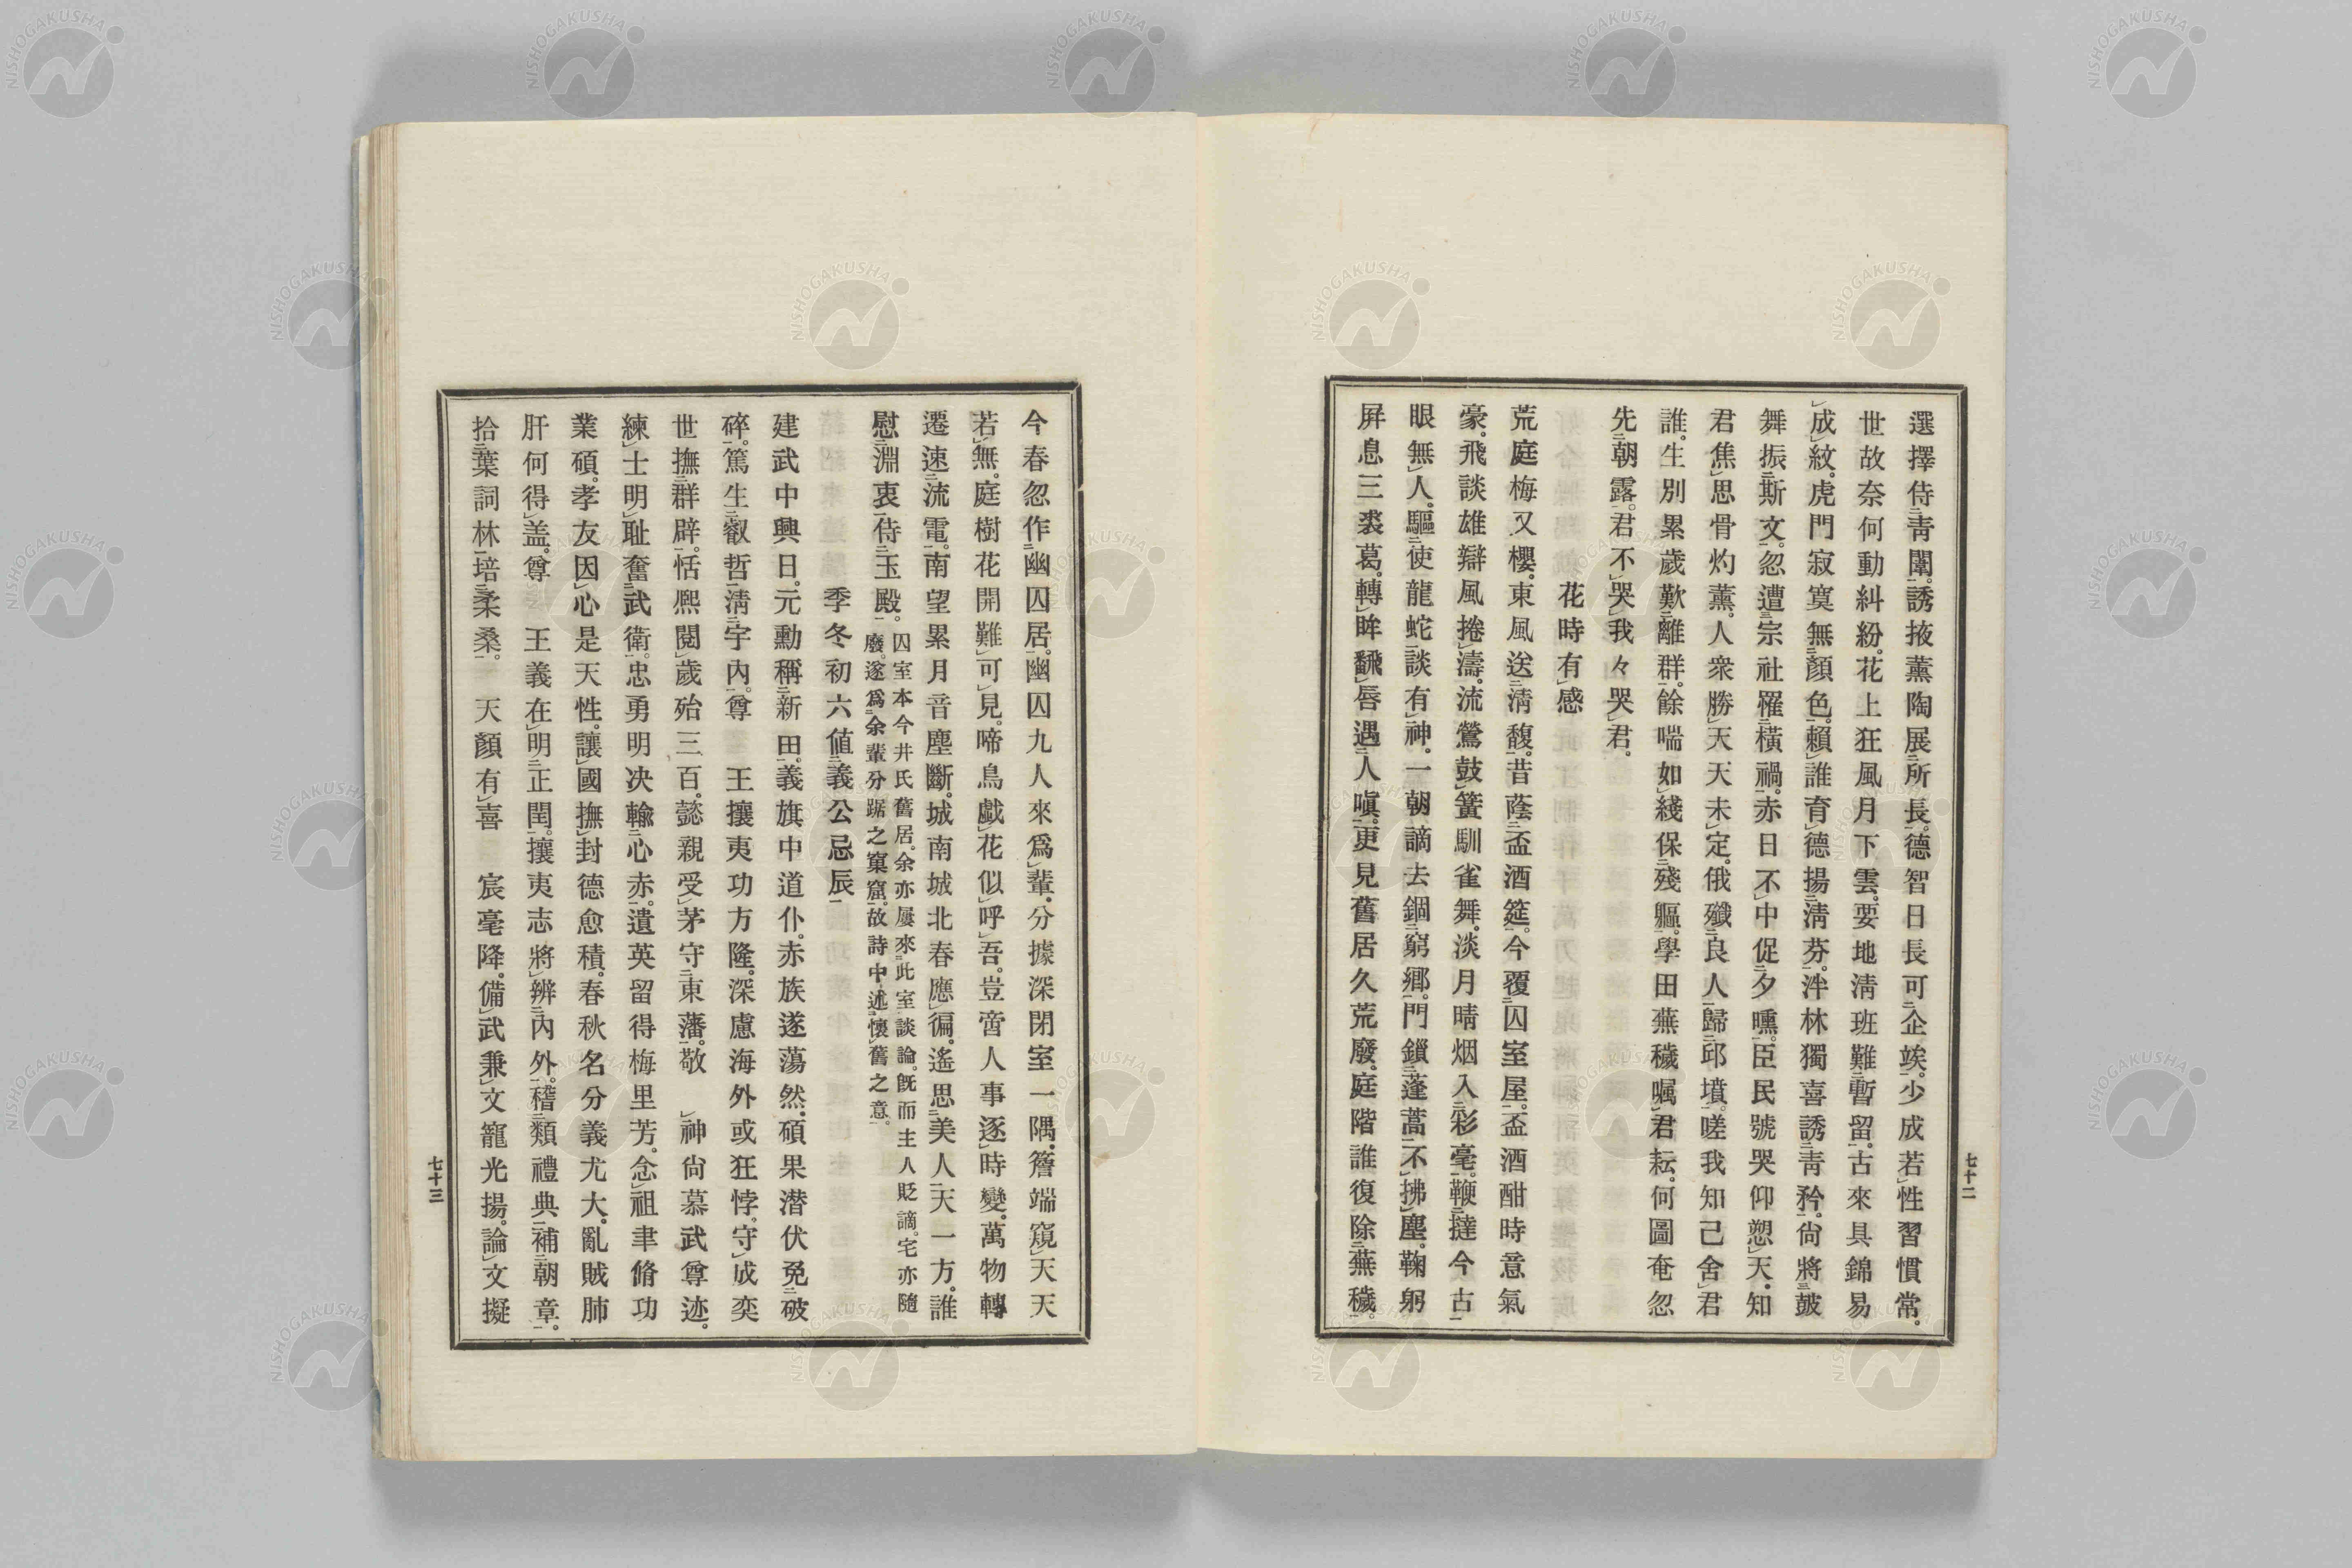 選擇侍靑闈。誘掖薰陶展所長。德智日長可企竢。少成若性習慣常。
世故奈何動糾紛。花上狂風月下雲。要地淸班難暫留。古來具錦易
成紋。虎門寂寞無顏色。賴誰育德揚淸芬。泮林獨喜誘靑矜。尙將皷
舞振斯文。忽遭宗社罹橫禍。赤日不中促夕曛。臣民號哭仰愬天。知
君焦思骨灼薰。人衆勝天天未定。俄殲良人歸邱墳。嗟我知己舍君
誰。生別累歲歎離群。餘喘如綫保殘軀。學田蕪穢嘱君耘。何圖奄忽
先朝露。君不哭我々哭君。
花時有感
荒庭梅又櫻。東風送淸馥。昔蔭盃酒筵。今覆囚室屋。盃酒酣時意氣
豪。飛談雄辯風捲濤。流鶯鼓簧馴雀舞。淡月晴烟入彩毫。鞭撻今古
眼無人。驅使龍蛇談有神。一朝謫去錮窮鄉。門鎖蓬蒿不拂塵。鞠躬
屛息三裘葛。轉眸飜唇遇人嗔。更見舊居久荒廢。庭階誰復除蕪穢。
七十二
今春忽作幽囚居。幽囚九人來爲輩。分據深閉室一隅。簷端窺天天
若無。庭樹花開難可見。啼鳥戯花似呼吾。豈啻人事逐時變。萬物轉
遷速流電。南望累月音塵斷。城南城北春應徧。遙思美人天一方。誰
慰淵衷侍玉殿。
囚室本今井氏舊居。余亦屢來此室談論。旣而主人貶謫。宅亦隨
廢。遂爲余輩分踞之窠窟。故詩中述懷舊之意。
季冬初六値義公忌辰
建武中興日。元勳稱新田。義旗中道仆。赤族遂蕩然。碩果潜伏免破
碎。篤生叡哲淸宇內。尊 王攘夷功方隆。深慮海外或狂悖。守成奕
世撫群辟。恬熈閲歲殆三百。懿親受茅守東藩。敬 神尙慕武尊迹。
練士明耻奮武衛。忠勇明决輸心赤。遺英留得梅里芳。念祖聿脩功
業碩。孝友因心是天性。讓國撫封德愈積。春秋名分義尤大。亂賊肺
肝何得盖。尊 王義在明正閏。攘夷志將辨內外。稽類禮典補朝章。
拾葉詞林培柔桑。 天顏有喜 宸毫降。備武兼文寵光揚。論文擬
七十三